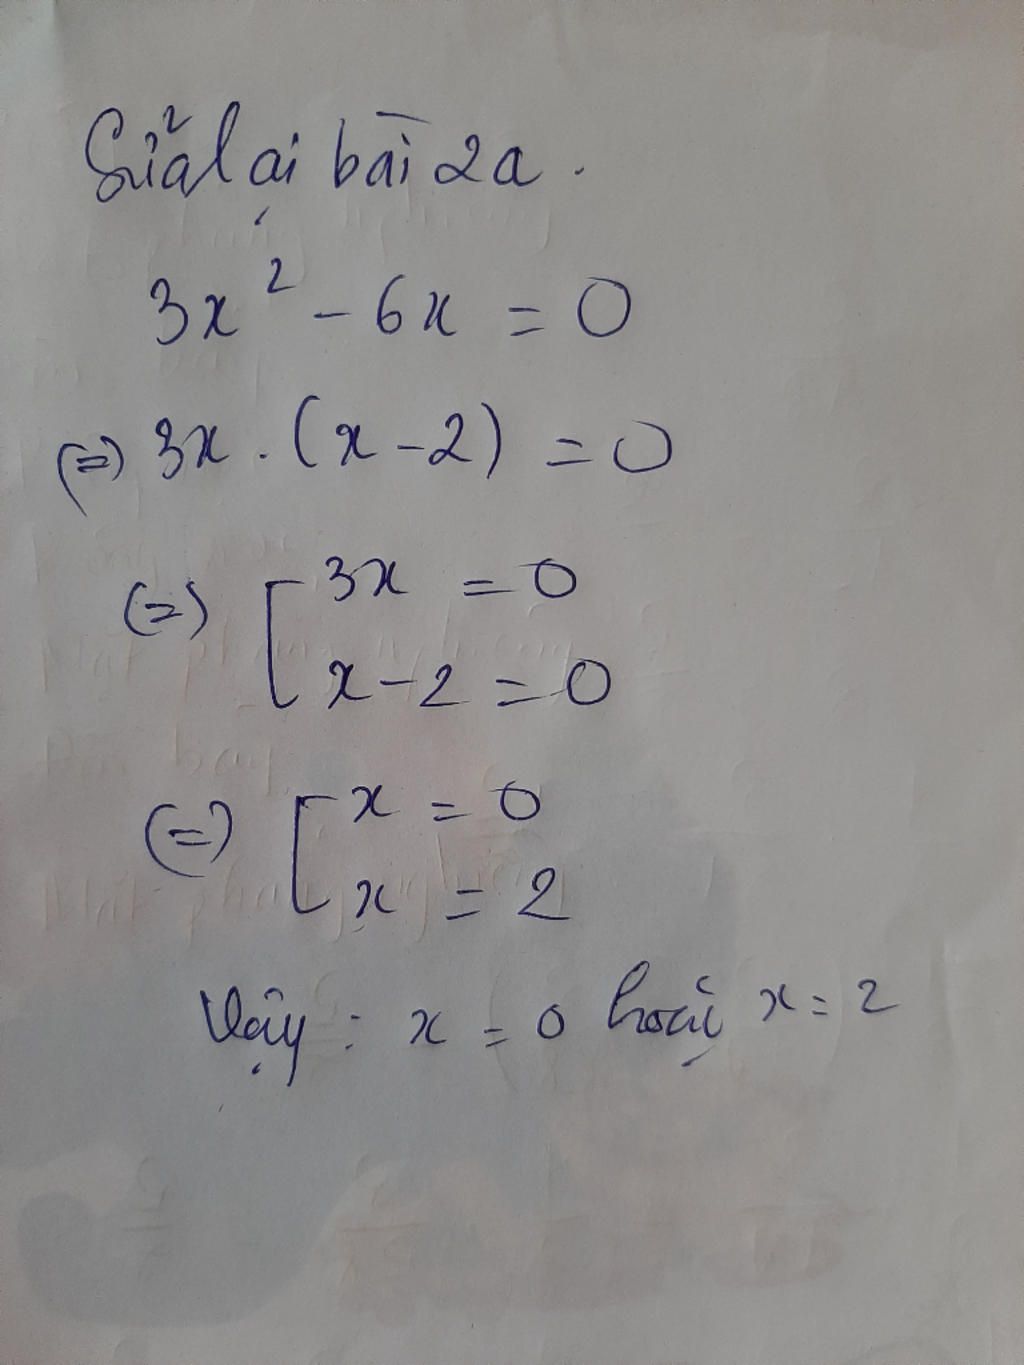 Sửa lại bài 2a.
3x² - 6x = 0
(=) 3x . (x - 2) = 0
(=) [ 3x = 0
x - 2 = 0
(=) [ x = 0
x = 2
Vậy : x = 0 hoặc x = 2